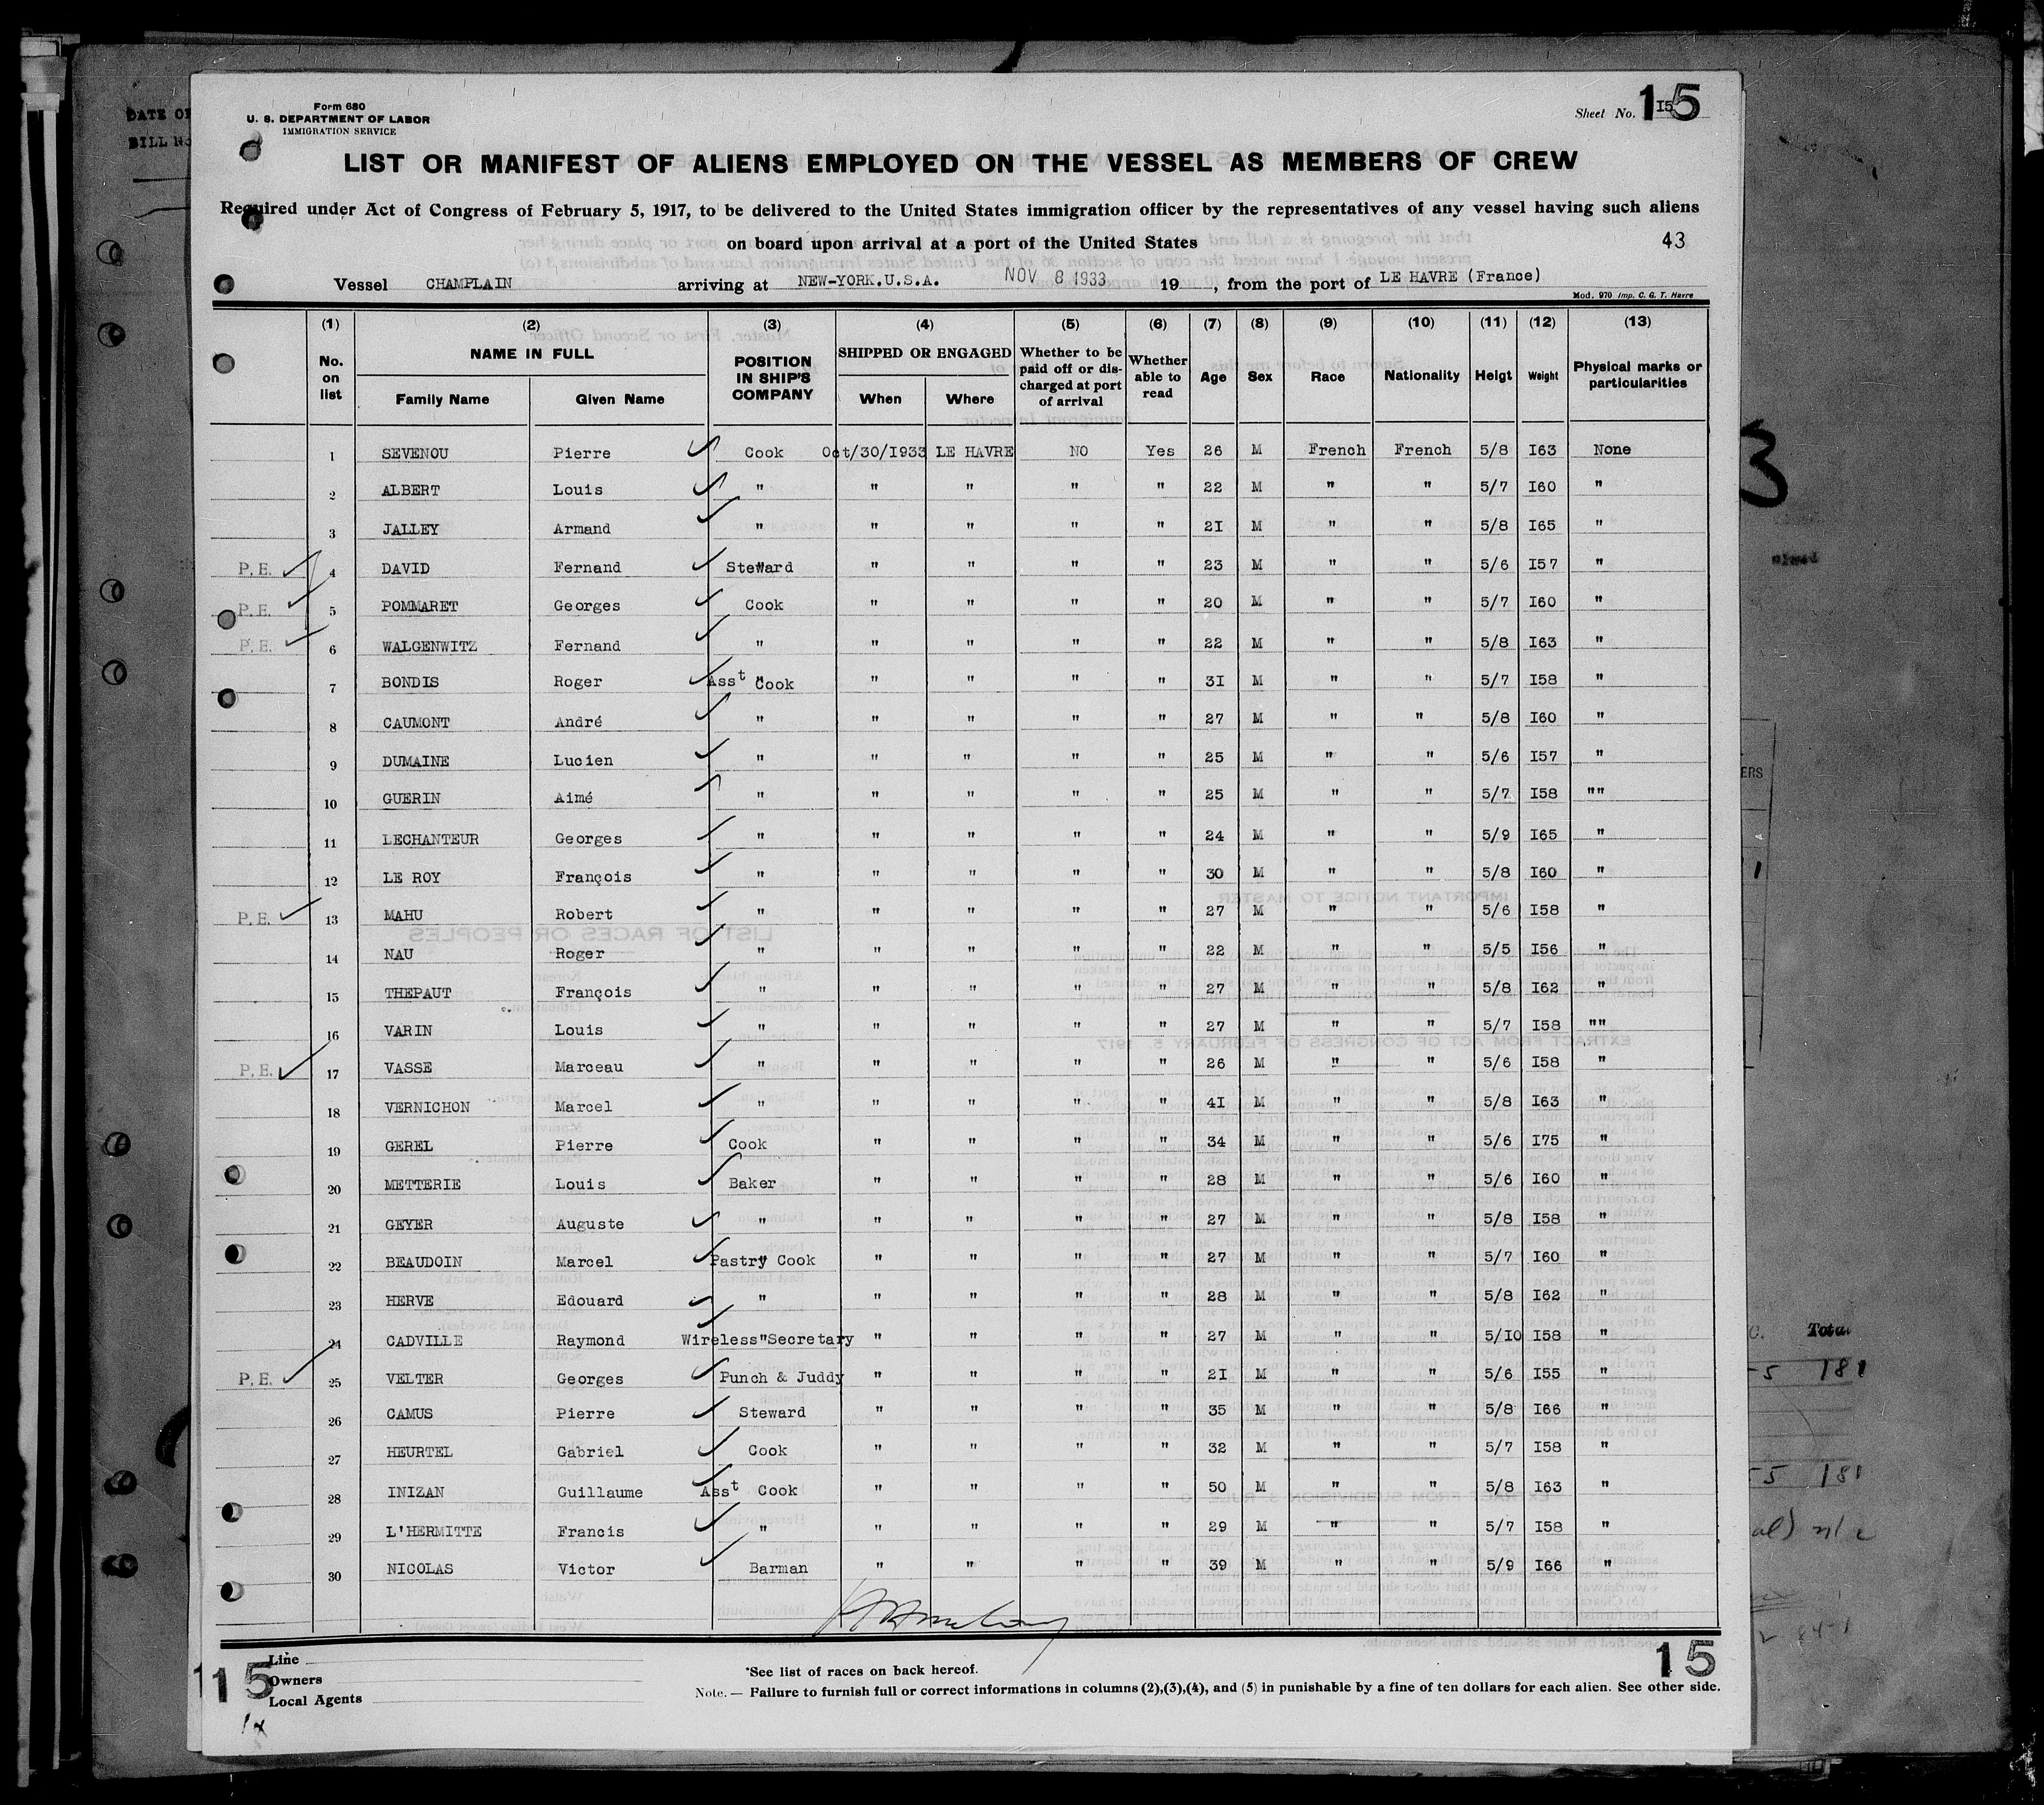 Form 680
U. S. DEPARTMENT OF LABOR
IMMIGRATION SERVICE
Sheet No. 15
DATE OF
BILL No
LIST OR MANIFEST OF ALIENS EMPLOYED ON THE VESSEL AS MEMBERS OF CREW
Required under Act of Congress of February 5, 1917, to be delivered to the United States immigration officer by the representatives of any vessel having such aliens
on board upon arrival at a port of the United States 43
Vessel CHAMPLAIN arriving at NEW-YORK.U.S.A. NOV 8 1933 19 , from the port of LE HAVRE (France)
Mod. 970 Imp. C. G. T. Havre
(1) (2) (3) (4) (5) (6) (7) (8) (9) (10) (11) (12) (13)
No. on list NAME IN FULL Family Name Given Name POSITION IN SHIP'S COMPANY SHIPPED OR ENGAGED When Where Whether to be paid off or discharged at port of arrival Whether able to read Age Sex Race Nationality Heigt Weight Physical marks or particularities
1 SEVENOU Pierre Cook Oct/30/I933 LE HAVRE NO Yes 26 M French French 5/8 I63 None
2 ALBERT Louis " " " " " 22 M " " 5/7 I60 "
3 JALLEY Armand " " " " " 2I M " " 5/8 I65 "
P.E. 4 DAVID Fernand Steward " " " " 23 M " " 5/6 I57 "
P.E. 5 POMMARET Georges Cook " " " " 20 M " " 5/7 I60 "
P.E. 6 WALGENWITZ Fernand " " " " " 22 M " " 5/8 I63 "
7 BONDIS Roger Asst Cook " " " " 3I M " " 5/7 I58 "
8 CAUMONT André " " " " " 27 M " " 5/8 I60 "
9 DUMAINE Lucien " " " " " 25 M " " 5/6 I57 "
10 GUERIN Aimé " " " " " 25 M " " 5/7 I58 ""
11 LECHANTEUR Georges " " " " " 24 M " " 5/9 I65 "
12 LE ROY François " " " " " 30 M " " 5/8 I60 "
P.E. 13 MAHU Robert " " " " " 27 M " " 5/6 I58 "
14 NAU Roger " " " " " 22 M " " 5/5 I56 "
15 THEPAUT François " " " " " 27 M " " 5/8 I62 "
16 VARIN Louis " " " " " 27 M " " 5/7 I58 ""
P.E. 17 VASSE Marceau " " " " " 26 M " " 5/6 I58 "
18 VERNICHON Marcel " " " " " 4I M " " 5/8 I63 "
19 GEREL Pierre Cook " " " " 34 M " " 5/6 I75 "
20 METTERIE Louis Baker " " " " 28 M " " 5/6 I60 "
21 GEYER Auguste " " " " " 27 M " " 5/8 I58 "
22 BEAUDOIN Marcel Pastry Cook " " " " 27 M " " 5/7 I60 "
23 HERVE Edouard " " " " " 28 M " " 5/8 I62 "
24 CADVILLE Raymond Wireless"Secretary " " " " 27 M " " 5/IO I58 "
P.E. 25 VELTER Georges Punch & Juddy " " " " 2I M " " 5/6 I55 "
26 CAMUS Pierre Steward " " " " 35 M " " 5/8 I66 "
27 HEURTEL Gabriel Cook " " " " 32 M " " 5/7 I58 "
28 INIZAN Guillaume Asst Cook " " " " 50 M " " 5/8 I63 "
29 L'HERMITTE Francis " " " " " 29 M " " 5/7 I58 "
30 NICOLAS Victor Barman " " " " 39 M " " 5/9 I66 "
Line
Owners
Local Agents
15
*See list of races on back hereof.
Note. — Failure to furnish full or correct informations in columns (2),(3),(4), and (5) in punishable by a fine of ten dollars for each alien. See other side.
15
3
ERS
Total
181
181